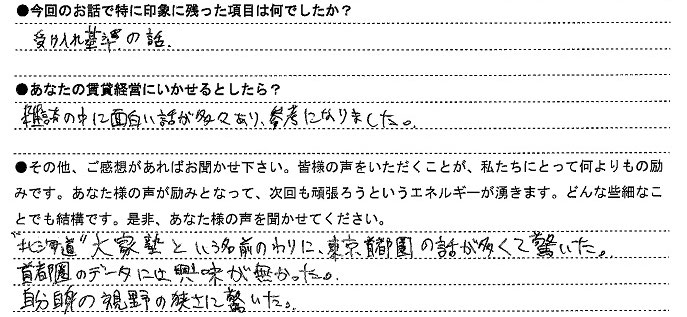 ●今回のお話で特に印象に残った項目は何でしたか？
受け入れ基準の話.
●あなたの賃貸経営にいかせるとしたら？
雑談の中に面白い話が多々あり、参考になりました。
●その他、ご感想があればお聞かせ下さい。皆様の声をいただくことが、私たちにとって何よりもの励
みです。あなた様の声が励みとなって、次回も頑張ろうというエネルギーが湧きます。どんな些細なこ
とでも結構です。是非、あなた様の声を聞かせてください。
"北海道"大家塾という名前のわりに、東京首都圏の話が多くて驚いた。
首都圏のデータには興味が無かった。
自分自身の視野の狭さに驚いた。